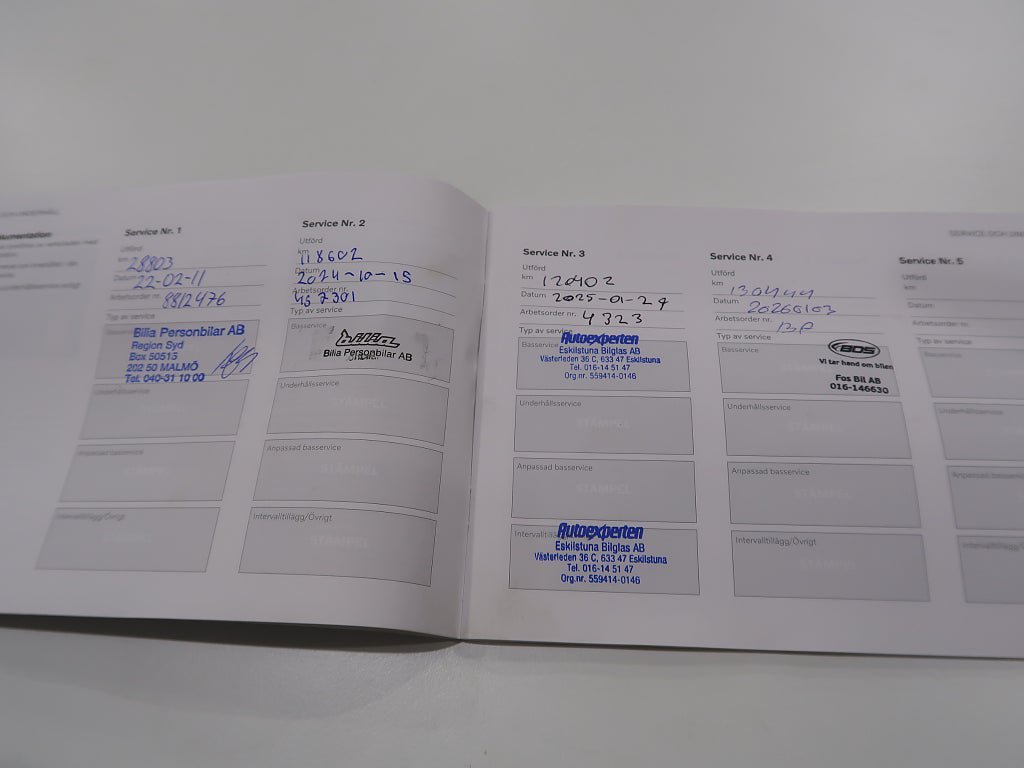 Service Nr. 1
Utförd
km 28803
Datum 22-02-11
Arbetsorder nr. 8812476
Typ av service
Bilia Personbilar AB
Region Syd
Box 50515
202 50 MALMÖ
Tel. 040-31 10 00
Underhållsservice
Anpassad basservice
STÄMPEL
Intervalltillägg/Övrigt
STÄMPEL
Service Nr. 2
Utförd
km 118602
Datum 2024-10-15
Arbetsorder nr.
Typ av service
Basservice
bilia
Bilia Personbilar AB
Underhållsservice
STÄMPEL
Anpassad basservice
STÄMPEL
Intervalltillägg/Övrigt
STÄMPEL
SERVICE OCH
Service Nr. 3
Utförd
km 120402
Datum 2025-01-27
Arbetsorder nr. 4323
Typ av service
Basservice
Autoexperten
Eskilstuna Bilglas AB
Västerleden 36 C, 633 47 Eskilstuna
Tel. 016-14 51 47
Org.nr. 559414-0146
Underhållsservice
STÄMPEL
Anpassad basservice
STÄMPEL
Autoexperten
Eskilstuna Bilglas AB
Västerleden 36 C, 633 47 Eskilstuna
Tel. 016-14 51 47
Org.nr. 559414-0146
Service Nr. 4
Utförd
km 130444
Datum 20260103
Arbetsorder nr.
Typ av service
Basservice
BDS
Vi tar hand om bilen
Fos Bil AB
016-146630
Underhållsservice
STÄMPEL
Anpassad basservice
STÄMPEL
Intervalltillägg/Övrigt
STÄMPEL
Service Nr. 5
Utförd
km
Datum
Arbetsorder nr.
Typ av service
Basservice
Underhållsservice